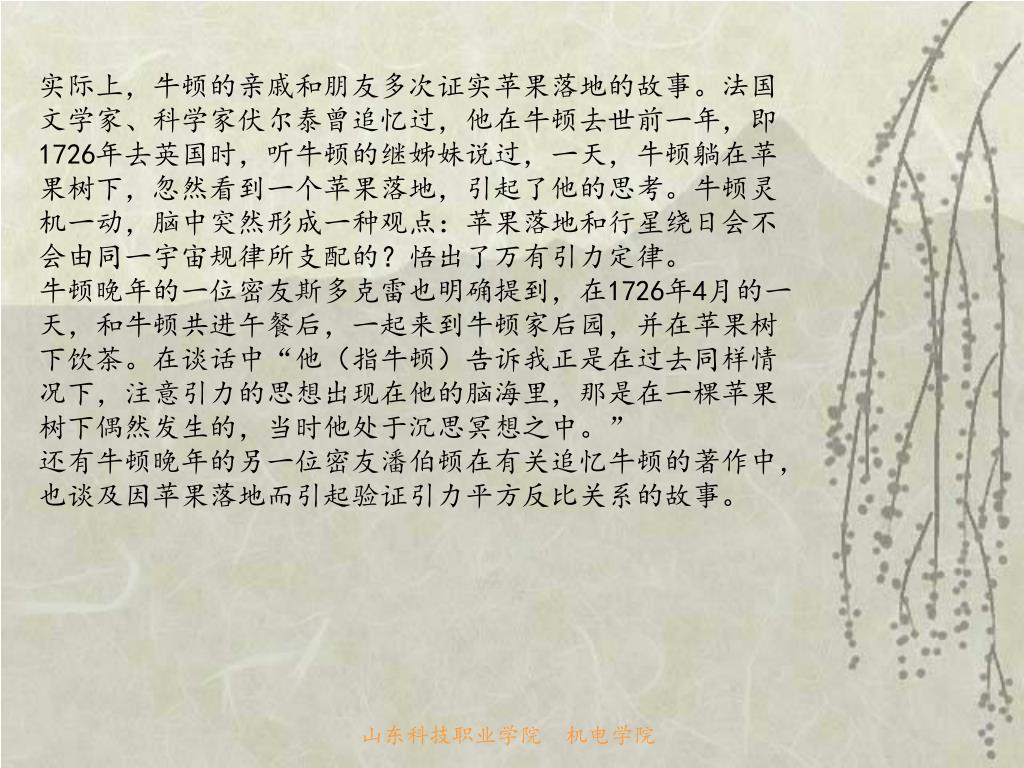 实际上，牛顿的亲戚和朋友多次证实苹果落地的故事。法国
文学家、科学家伏尔泰曾追忆过，他在牛顿去世前一年，即
1726年去英国时，听牛顿的继姊妹说过，一天，牛顿躺在苹
果树下，忽然看到一个苹果落地，引起了他的思考。牛顿灵
机一动，脑中突然形成一种观点：苹果落地和行星绕日会不
会由同一宇宙规律所支配的？悟出了万有引力定律。
牛顿晚年的一位密友斯多克雷也明确提到，在1726年4月的一
天，和牛顿共进午餐后，一起来到牛顿家后园，并在苹果树
下饮茶。在谈话中“他（指牛顿）告诉我正是在过去同样情
况下，注意引力的思想出现在他的脑海里，那是在一棵苹果
树下偶然发生的，当时他处于沉思冥想之中。”
还有牛顿晚年的另一位密友潘伯顿在有关追忆牛顿的著作中，
也谈及因苹果落地而引起验证引力平方反比关系的故事。
山东科技职业学院 机电学院